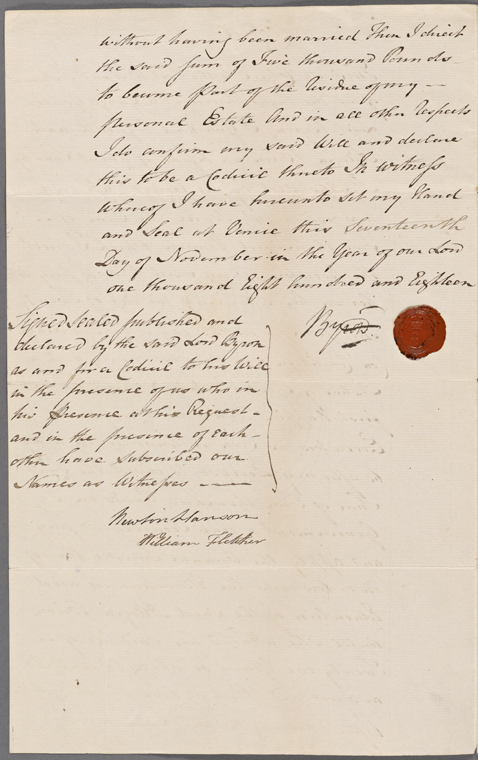 without having been married Then I direct
the said sum of Five thousand Pounds
to become Part of the Residue of my —
personal Estate And in all other respects
I do confirm my said Will and declare
this to be a Codicil thereto In Witness
whereof I have hereunto set my Hand
and Seal at Venice this Seventeenth
Day of November in the Year of our Lord
one thousand Eight hundred and Eighteen
Byron
Signed sealed published and
declared by the said Lord Byron
as and for a Codicil to his Will
in the presence of us who in
his presence at his Request –
and in the presence of Each –
other have subscribed our
Names as Witnesses ———
Newton Hanson
William Fletcher